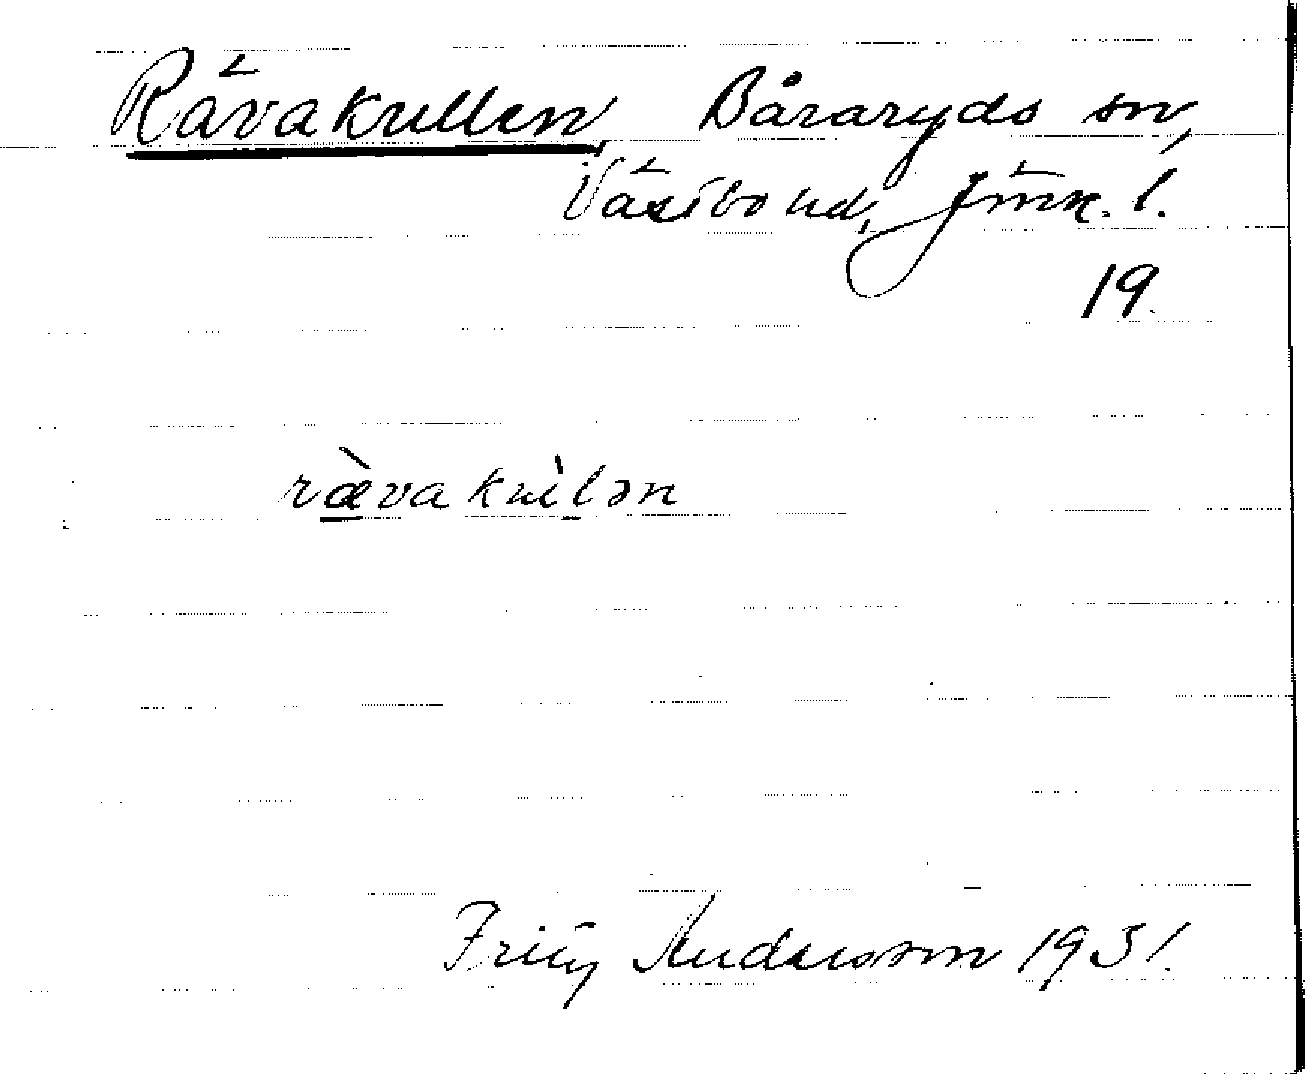 Rävakullen, Båraryds sn,
Västbo hd, Jönk. l.
19.
rævakulən
Fritz Andersson 1931.